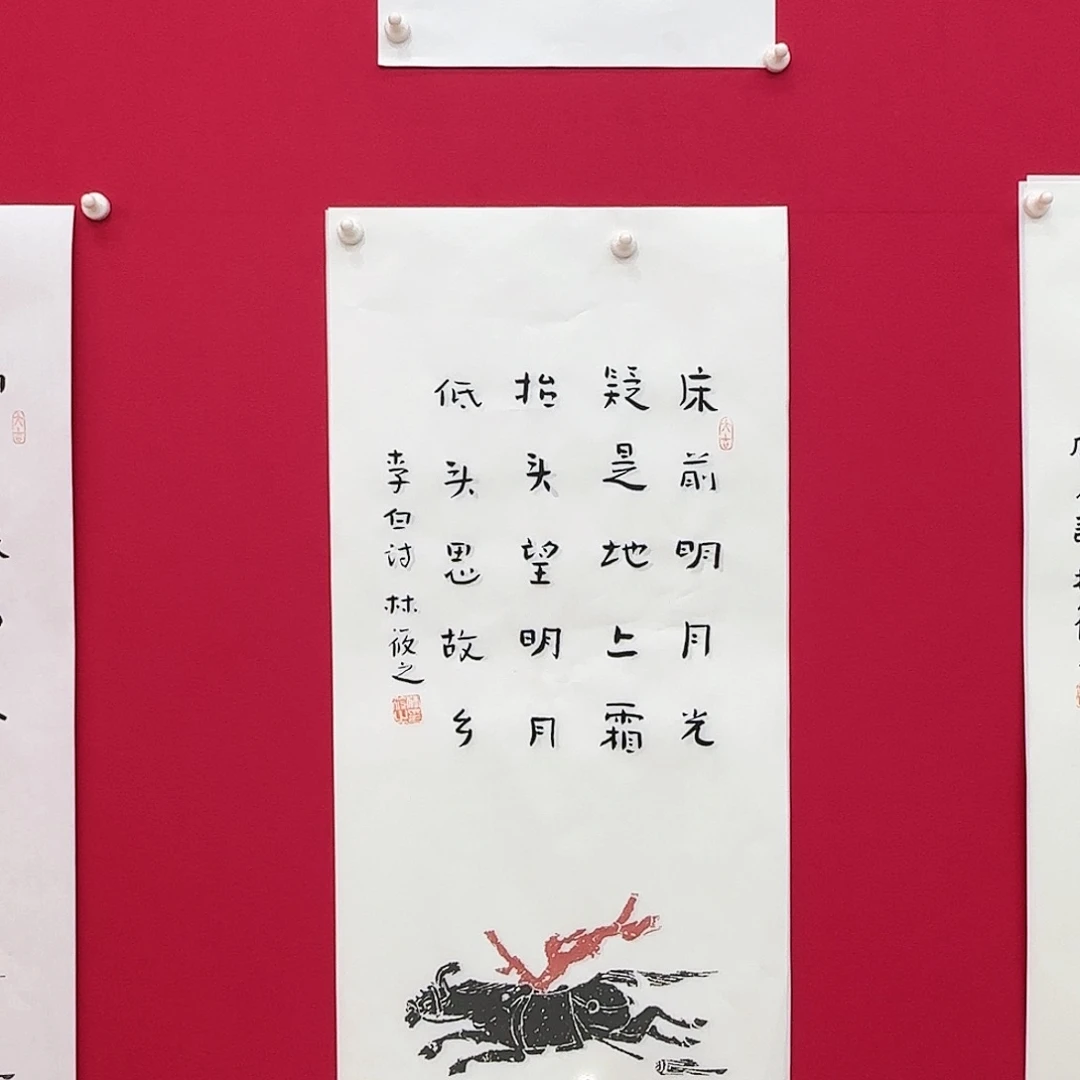 床前明月光
疑是地上霜
抬头望明月
低头思故乡
李白诗 林筱之
大吉